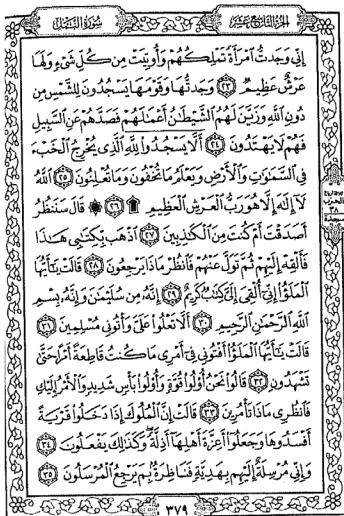 الجزء التاسع عشر
سورة النمل
إِنِّي وَجَدتُّ ٱمْرَأَةً تَمْلِكُهُمْ وَأُوتِيَتْ مِن كُلِّ شَيْءٍ وَلَهَا
عَرْشٌ عَظِيمٌ ٢٣ وَجَدتُّهَا وَقَوْمَهَا يَسْجُدُونَ لِلشَّمْسِ مِن
دُونِ ٱللَّهِ وَزَيَّنَ لَهُمُ ٱلشَّيْطَٰنُ أَعْمَٰلَهُمْ فَصَدَّهُمْ عَنِ ٱلسَّبِيلِ
فَهُمْ لَا يَهْتَدُونَ ٢٤ أَلَّا يَسْجُدُوا۟ لِلَّهِ ٱلَّذِى يُخْرِجُ ٱلْخَبْءَ
فِى ٱلسَّمَٰوَٰتِ وَٱلْأَرْضِ وَيَعْلَمُ مَا تُخْفُونَ وَمَا تُعْلِنُونَ ٢٥ ٱللَّهُ
لَآ إِلَٰهَ إِلَّا هُوَ رَبُّ ٱلْعَرْشِ ٱلْعَظِيمِ ۩ ٢٦ ۞ قَالَ سَنَنظُرُ
أَصَدَقْتَ أَمْ كُنتَ مِنَ ٱلْكَٰذِبِينَ ٢٧ ٱذْهَب بِّكِتَٰبِى هَٰذَا
فَأَلْقِهْ إِلَيْهِمْ ثُمَّ تَوَلَّ عَنْهُمْ فَٱنظُرْ مَاذَا يَرْجِعُونَ ٢٨ قَالَتْ يَٰٓأَيُّهَا
ٱلْمَلَؤُا۟ إِنِّىٓ أُلْقِىَ إِلَىَّ كِتَٰبٌ كَرِيمٌ ٢٩ إِنَّهُۥ مِن سُلَيْمَٰنَ وَإِنَّهُۥ بِسْمِ
ٱللَّهِ ٱلرَّحْمَٰنِ ٱلرَّحِيمِ ٣٠ أَلَّا تَعْلُوا۟ عَلَىَّ وَأْتُونِى مُسْلِمِينَ ٣١
قَالَتْ يَٰٓأَيُّهَا ٱلْمَلَؤُا۟ أَفْتُونِى فِىٓ أَمْرِى مَا كُنتُ قَاطِعَةً أَمْرًا حَتَّىٰ
تَشْهَدُونِ ٣٢ قَالُوا۟ نَحْنُ أُو۟لُوا۟ قُوَّةٍ وَأُو۟لُوا۟ بَأْسٍ شَدِيدٍ وَٱلْأَمْرُ إِلَيْكِ
فَٱنظُرِى مَاذَا تَأْمُرِينَ ٣٣ قَالَتْ إِنَّ ٱلْمُلُوكَ إِذَا دَخَلُوا۟ قَرْيَةً
أَفْسَدُوهَا وَجَعَلُوٓا۟ أَعِزَّةَ أَهْلِهَآ أَذِلَّةً وَكَذَٰلِكَ يَفْعَلُونَ ٣٤
وَإِنِّى مُرْسِلَةٌ إِلَيْهِم بِهَدِيَّةٍ فَنَاظِرَةٌۢ بِمَ يَرْجِعُ ٱلْمُرْسَلُونَ ٣٥
الحزب
٣٨
سجدة
٣٧٩